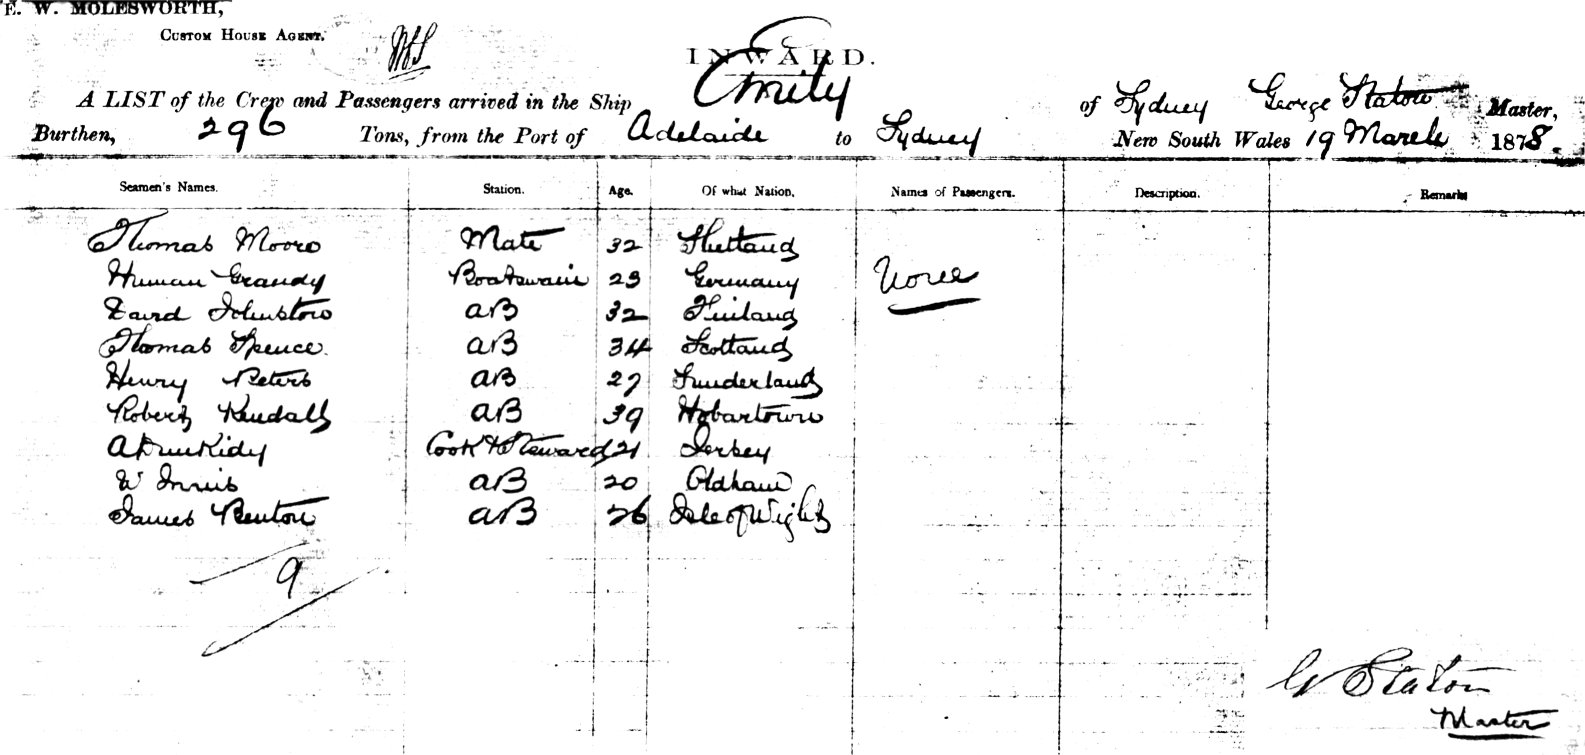 E. W. MOLESWORTH,
CUSTOM HOUSE AGENT.
INWARD.
A LIST of the Crew and Passengers arrived in the Ship Emily of Sydney George Staton Master,
Burthen, 296 Tons, from the Port of Adelaide to Sydney New South Wales 19 March 1878.
Seamen's Names. Station. Age. Of what Nation. Names of Passengers. Description. Remarks
Thomas Moore Mate 32 Shetland
Human Grandy Boatswain 23 Germany None
David Johnston AB 32 Finland
Thomas Spence. AB 34 Scotland
Henry Peters AB 27 Sunderland
Robert Kendall AB 39 Hobartown
Cook & Steward 21 Jersey
W Innis AB 20 Oldham
James Renton AB 26 Isle of Wight
9
G Staton
Master